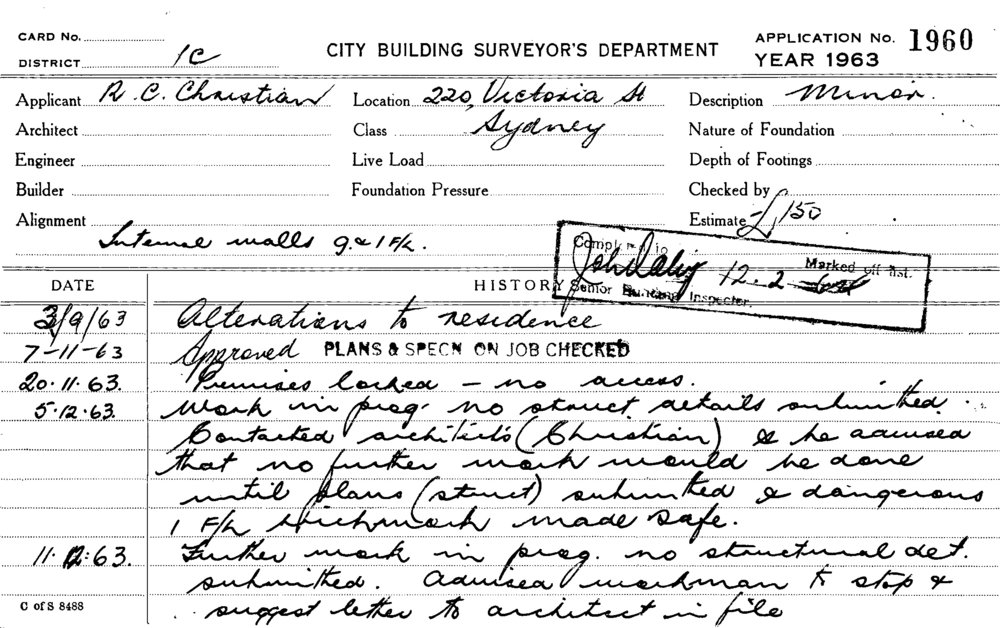 CARD No.
DISTRICT 1C
CITY BUILDING SURVEYOR'S DEPARTMENT
APPLICATION No. 1960
YEAR 1963
Applicant R. C. Christian Location 220, Victoria St Description Minor.
Architect Class Sydney Nature of Foundation
Engineer Live Load Depth of Footings
Builder Foundation Pressure Checked by
Alignment Estimate £150
Internal walls g. & 1 F/L.
Marked off list.
12.2
Senior Building Inspector.
DATE HISTORY
3/9/63 Alterations to residence
7-11-63 Approved PLANS & SPECN ON JOB CHECKED
20.11.63. Premises locked - no access.
5.12.63. Work in prog. no struct. details submitted.
Contacted architects (Christian) & he advised
that no further work would be done
until plans (struct) submitted & dangerous
1 F/L brickwork made safe.
11.12.63. Further work in prog. no structural det.
submitted. Advised workman to stop &
suggest letter to architect in file
C of S 8488